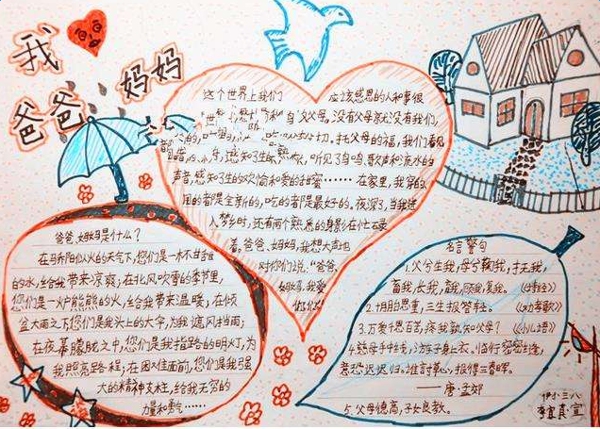 我
爸爸 妈妈
这个世界上我们 应该感恩的人和事很
自父母。没有父母就没有我们,
切。托父母的福,我们看见
听见了鸟鸣歌声和流水的
声音,感知了生的欢愉和爱的甜蜜……在家里,我穿的
用的者是全新的,吃的者是最好的。夜深了,当我进
入梦乡时,还有两个熟悉的身影在忙碌
着。爸爸、妈妈,我想大声地
对你们说:“爸爸、
爸爸、妈妈是什么?
在马乔阳似火的天气下,您们是一木不甘甜
的水,给我带来凉爽;在北风吹雪的季节里,
您们是一炉熊熊的火,给我带来温暖;在倾
盆大雨之下,您们是我头上的大伞,为我遮风挡雨;
在夜幕朦胧之中,您们是我指路的明灯,为
我照亮路程;在困难面前,您们是我强
大的精神支柱,给我无穷的
力量和勇气……
名言警句
1.父兮生我,母兮鞠我,抚我,
畜我,长我,育我,顾我,复我。
2.十月胎恩重,三生报答轻。
3.万爱千恩百苦,疼我孰知父母?《小儿语》
4.慈母手中线,游子身上衣。临行密密缝,
意恐迟迟归。谁言寸草心,报得三春晖。
——唐·孟郊
5.父母德高,子女良教。